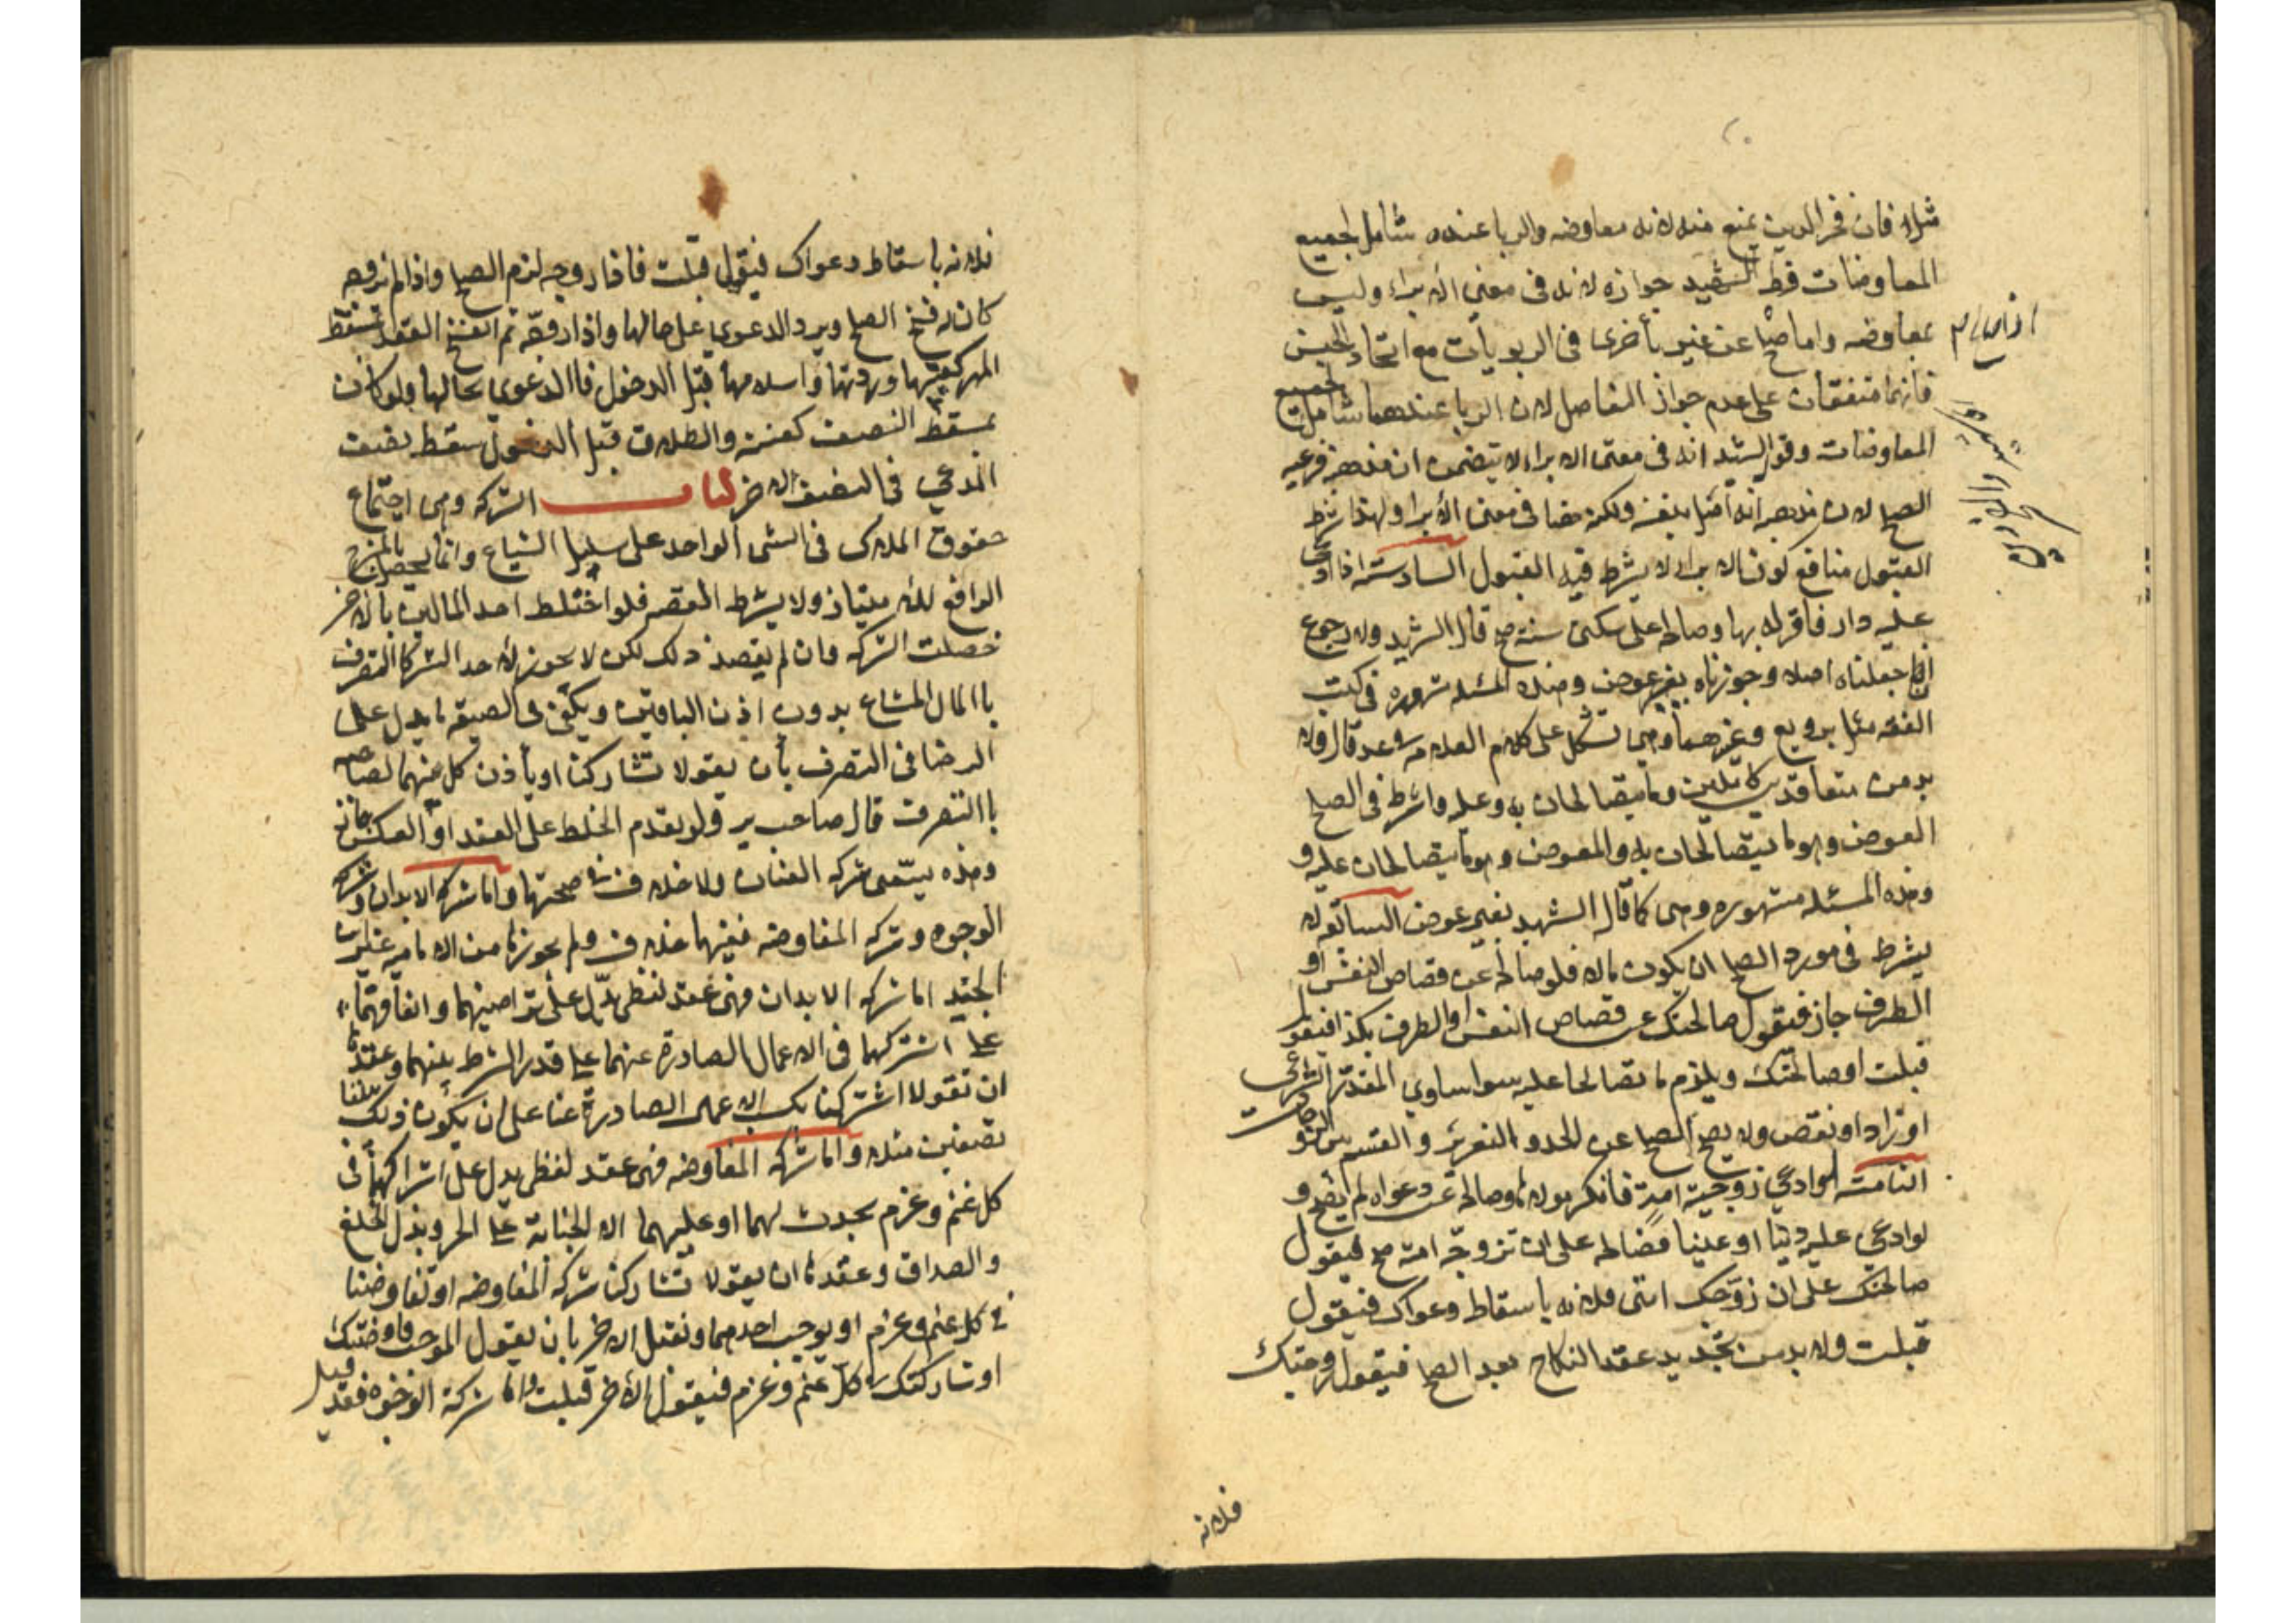 مثلا فان فخر الدين يمنع منه لانه معاوضه والربا عنده شامل لجميع
المعاوضات فقط الشهيد جوازه لانه في معنى الابراء وليس
بمعاوضه واما صلحا عن غير بأخرى في الربويات مع اتحاد الجنس
فانهما متفقان على عدم جواز التفاضل لان الربا عندهما شامل لجميع
المعاوضات وقول الشهيد انه في معنى الابراء لا يتضمن ان مذهبه فرعيه
الصلح لان مذهبه انه اصل بنفسه ولكنه هنا في معنى الابرا ولهذا شرط
القبول منافع كونه الابراء لا يشرط فيه القبول السادسة اذا ادعى
عليه دار فاقر له بها وصالحه على سكنى سنة صح قال الشهيد ولا رجوع
اذا جعلناه اصلا وجوزناه بغير عوض وهذه المسئله مشهوره في كتب
الفقه مثل ير ويع وغيرهما وهي تشكل على كلام العلامه وعد قال ولا
بد من متعاقدين كاملين وما يتصالحان به وعليه واشرط في الصلح
العوض وهو ما يتصالحان به والمعوض وهو ما يتصالحان عليه و
هذه المسئله مشهوره وهي كما قال الشهيد بغير عوض السابعة لا
يشرط في مورد الصلح ان يكون مالا فلو صالح عن قصاص النفس او
الطرف جاز فيقول صالحتك عن قصاص النفس او الطرف بكذا فيقول
قبلت او صالحتك ويلزم ما تصالحا عليه سوا ساوي المقدر الشرعي
او زاد او نقص ولا يصح الصلح عن الحد والتعزير والقسم بين الزوجات
الثامنة لو ادعى زوجية امة فانكر مولاها وصالحه عن دعواه لم يصح و
لو ادعى عليه دينا او عينا فصالحه على ان تزوجه امته صح فيقول
صالحتك على ان زوجتك امتى فلانه باسقاط دعواك فيقول
قبلت ولا بد من تجديد عقد النكاح بعد الصلح فيقول زوجتك
فلانه
فلانه باسقاط دعواك فيقول قبلت فاذا زوجه لزم الصلح واذا لم يزوجه
كان له فسخ الصلح ويرد الدعوى على حالها واذا زوجه ثم انفسخ العقد تسقط
المهر كعيبها وردتها واسلامها قبل الدخول فاالدعوى بحالها ولو كان
بمسقط النصف كعننه والطلاق قبل الدخول سقط نصف
المدعى في النصف الاخر كتاب الشركه وهي اجتماع
حقوق الملاك في الشي الواحد على سبيل الشياع وانما يحصل بالمزج
الرافع للامتياز ولا يشرط القصد فلو اختلط احد المالين بالاخر
حصلت الشركه وان لم يقصد ذلك لكن لا يجوز لاحد الشركا التصرف
باالمال المشاع بدون اذن الباقين ويكفى في الصيغه ما يدل على
الرضا في التصرف بأن يقولا تشاركنا او يأذن كل منهما لصاحبه
باالتصرف قال صاحب ير ولو تقدم الخلط على العقد او العكس جاز
وهذه يسمى شركه العنان ولا خلاف في صحتها واما شركه الابدان وشركه
الوجوه وشركه المفاوضه ففيها خلاف ولم يجوزها من الاماميه غير ابن
الجنيد اما شركه الابدان فهى عقد لفظى يدل على تراضيهما واتفاقهما
على اشتراكهما في الاعمال الصادرة عنهما على قدر الشرط بينهما وعقدها
ان تقولا اشتركنا بكسب الاعمال الصادرة عنا على ان يكون ذلك بيننا
نصفين مثلا واما شركه المفاوضه فهى عقد لفظى يدل على اشتراكهما في
كل غنم وغرم يحدث لهما او عليهما الا الجناية على الحر وبذل الخلع
والصداق وعقدها ان يقولا تشاركنا شركه المفاوضه او تفاوضنا
في كل غنم وغرم او يوجب احدهما ونقبل الاخر بان يقول الموجب فاوضتك
او شاركتك في كل غنم وغرم فيقول الاخر قبلت واما شركة الوجوه فقد قيل